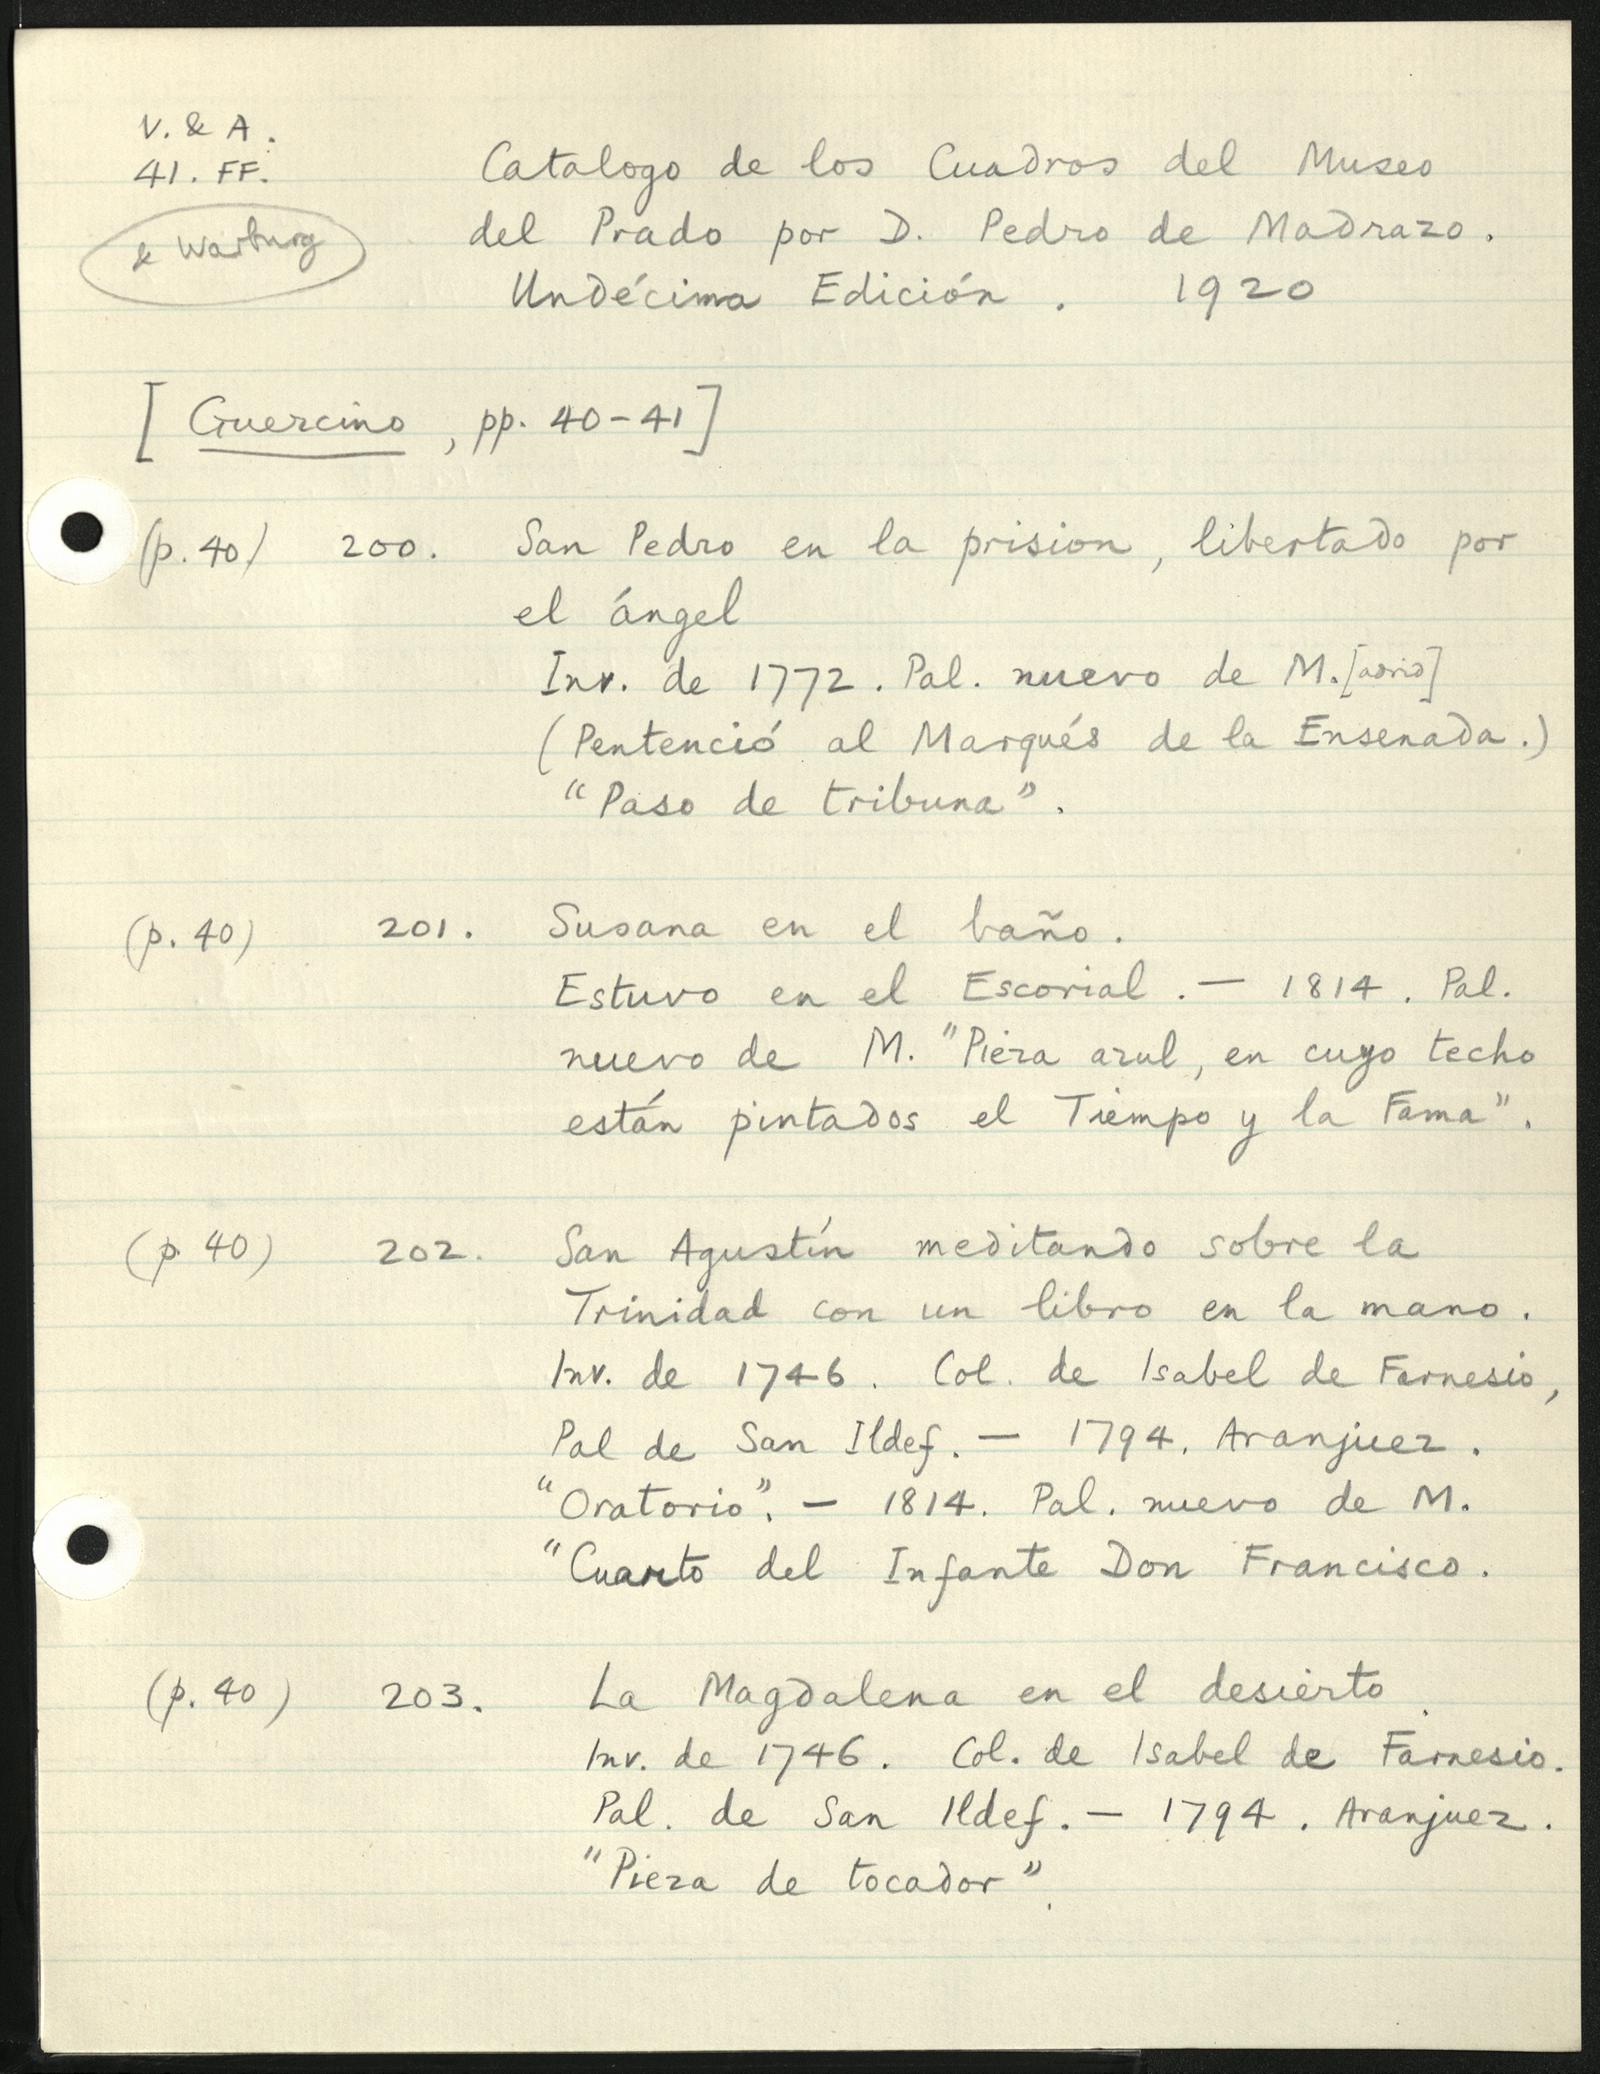 V. & A.
41. FF.
& Warburg
Catalogo de los Cuadros del Museo
del Prado por D. Pedro de Madrazo.
Undécima Edición. 1920
[Guercino, pp. 40-41]
(p. 40) 200. San Pedro en la prision, libertado por
el ángel
Inv. de 1772. Pal. nuevo de M.[adrid]
(Pentenció al Marqués de la Ensenada.)
"Paso de tribuna".
(p. 40) 201. Susana en el baño.
Estuvo en el Escorial. — 1814. Pal.
nuevo de M. "Pieza azul, en cuyo techo
están pintados el Tiempo y la Fama".
(p. 40) 202. San Agustín meditando sobre la
Trinidad con un libro en la mano.
Inv. de 1746. Col. de Isabel de Farnesio,
Pal de San Ildef. — 1794. Aranjuez.
"Oratorio". — 1814. Pal. nuevo de M.
"Cuarto del Infante Don Francisco.
(p. 40) 203. La Magdalena en el desierto.
Inv. de 1746. Col. de Isabel de Farnesio.
Pal. de San Ildef. — 1794. Aranjuez.
"Pieza de tocador".